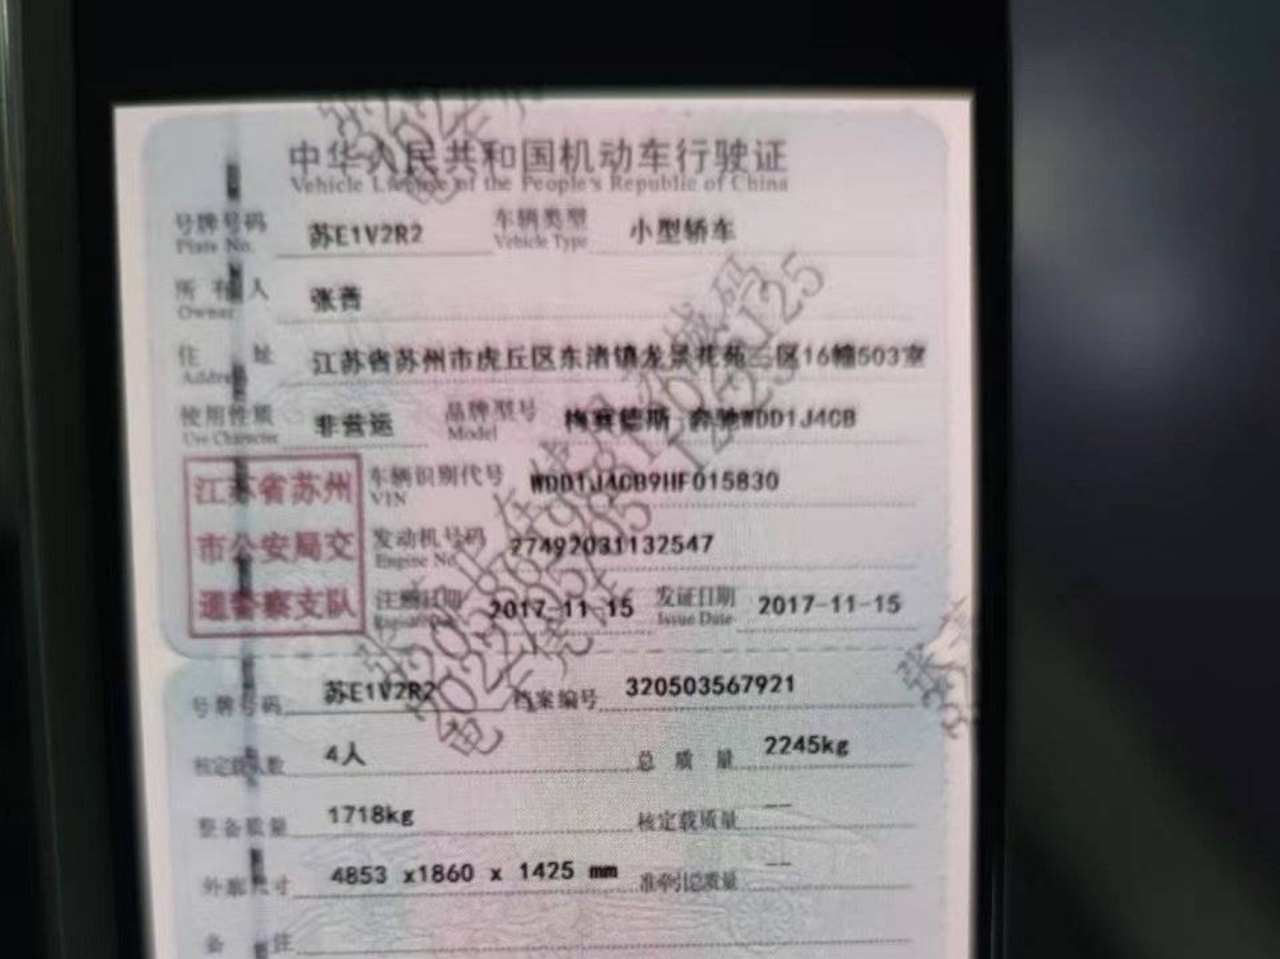 中华人民共和国机动车行驶证
Vehicle License of the People's Republic of China
号牌号码 苏E1V2R2 车辆类型 小型轿车
Plate No. Vehicle Type
所有人 张
Owner
住址 江苏省苏州市虎丘区东渚镇龙景花苑二区16幢503室
Address
使用性质 非营运 品牌型号 梅赛德斯 奔驰WDD1J4CB
Use Character Model
江苏省苏州
市公安局交
通警察支队
车辆识别代号 WDD1J4CB9HF015830
VIN
发动机号码 27492031132547
Engine No.
注册日期 2017-11-15 发证日期 2017-11-15
Register Date Issue Date
号牌号码 苏E1V2R2 档案编号 320503567921
核定载人数 4人 总质量 2245kg
整备质量 1718kg 核定载质量 --
外廓尺寸 4853 x1860 x 1425 mm 准牵引总质量 --
备注